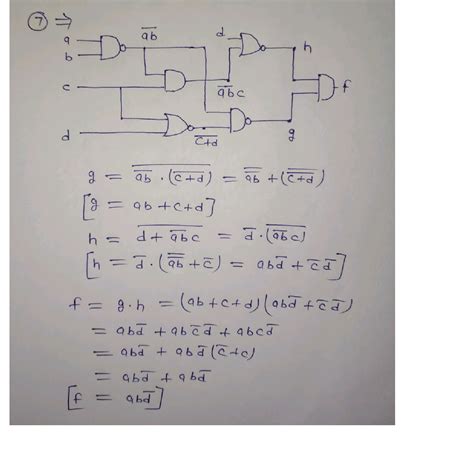 ⑦ ⇒
a
b
c
d
a̅b̅
d
h
f
a̅b̅ c
c̅+̅d̅
g
g = \overline{\overline{ab} · (\overline{c+d})} = \overline{\overline{ab}} + (\overline{\overline{c+d}})
[g = ab + c + d]
h = \overline{d + \overline{ab} c} = \overline{d} · (\overline{\overline{ab} c})
[h = \overline{d} · (\overline{\overline{ab}} + \overline{c}) = ab\overline{d} + \overline{c} \overline{d}]
f = g · h = (ab + c + d) (ab\overline{d} + \overline{c} \overline{d})
= ab\overline{d} + ab\overline{c} \overline{d} + abc\overline{d}
= ab\overline{d} + ab\overline{d} (\overline{c} + c)
= ab\overline{d} + ab\overline{d}
[f = ab\overline{d}]